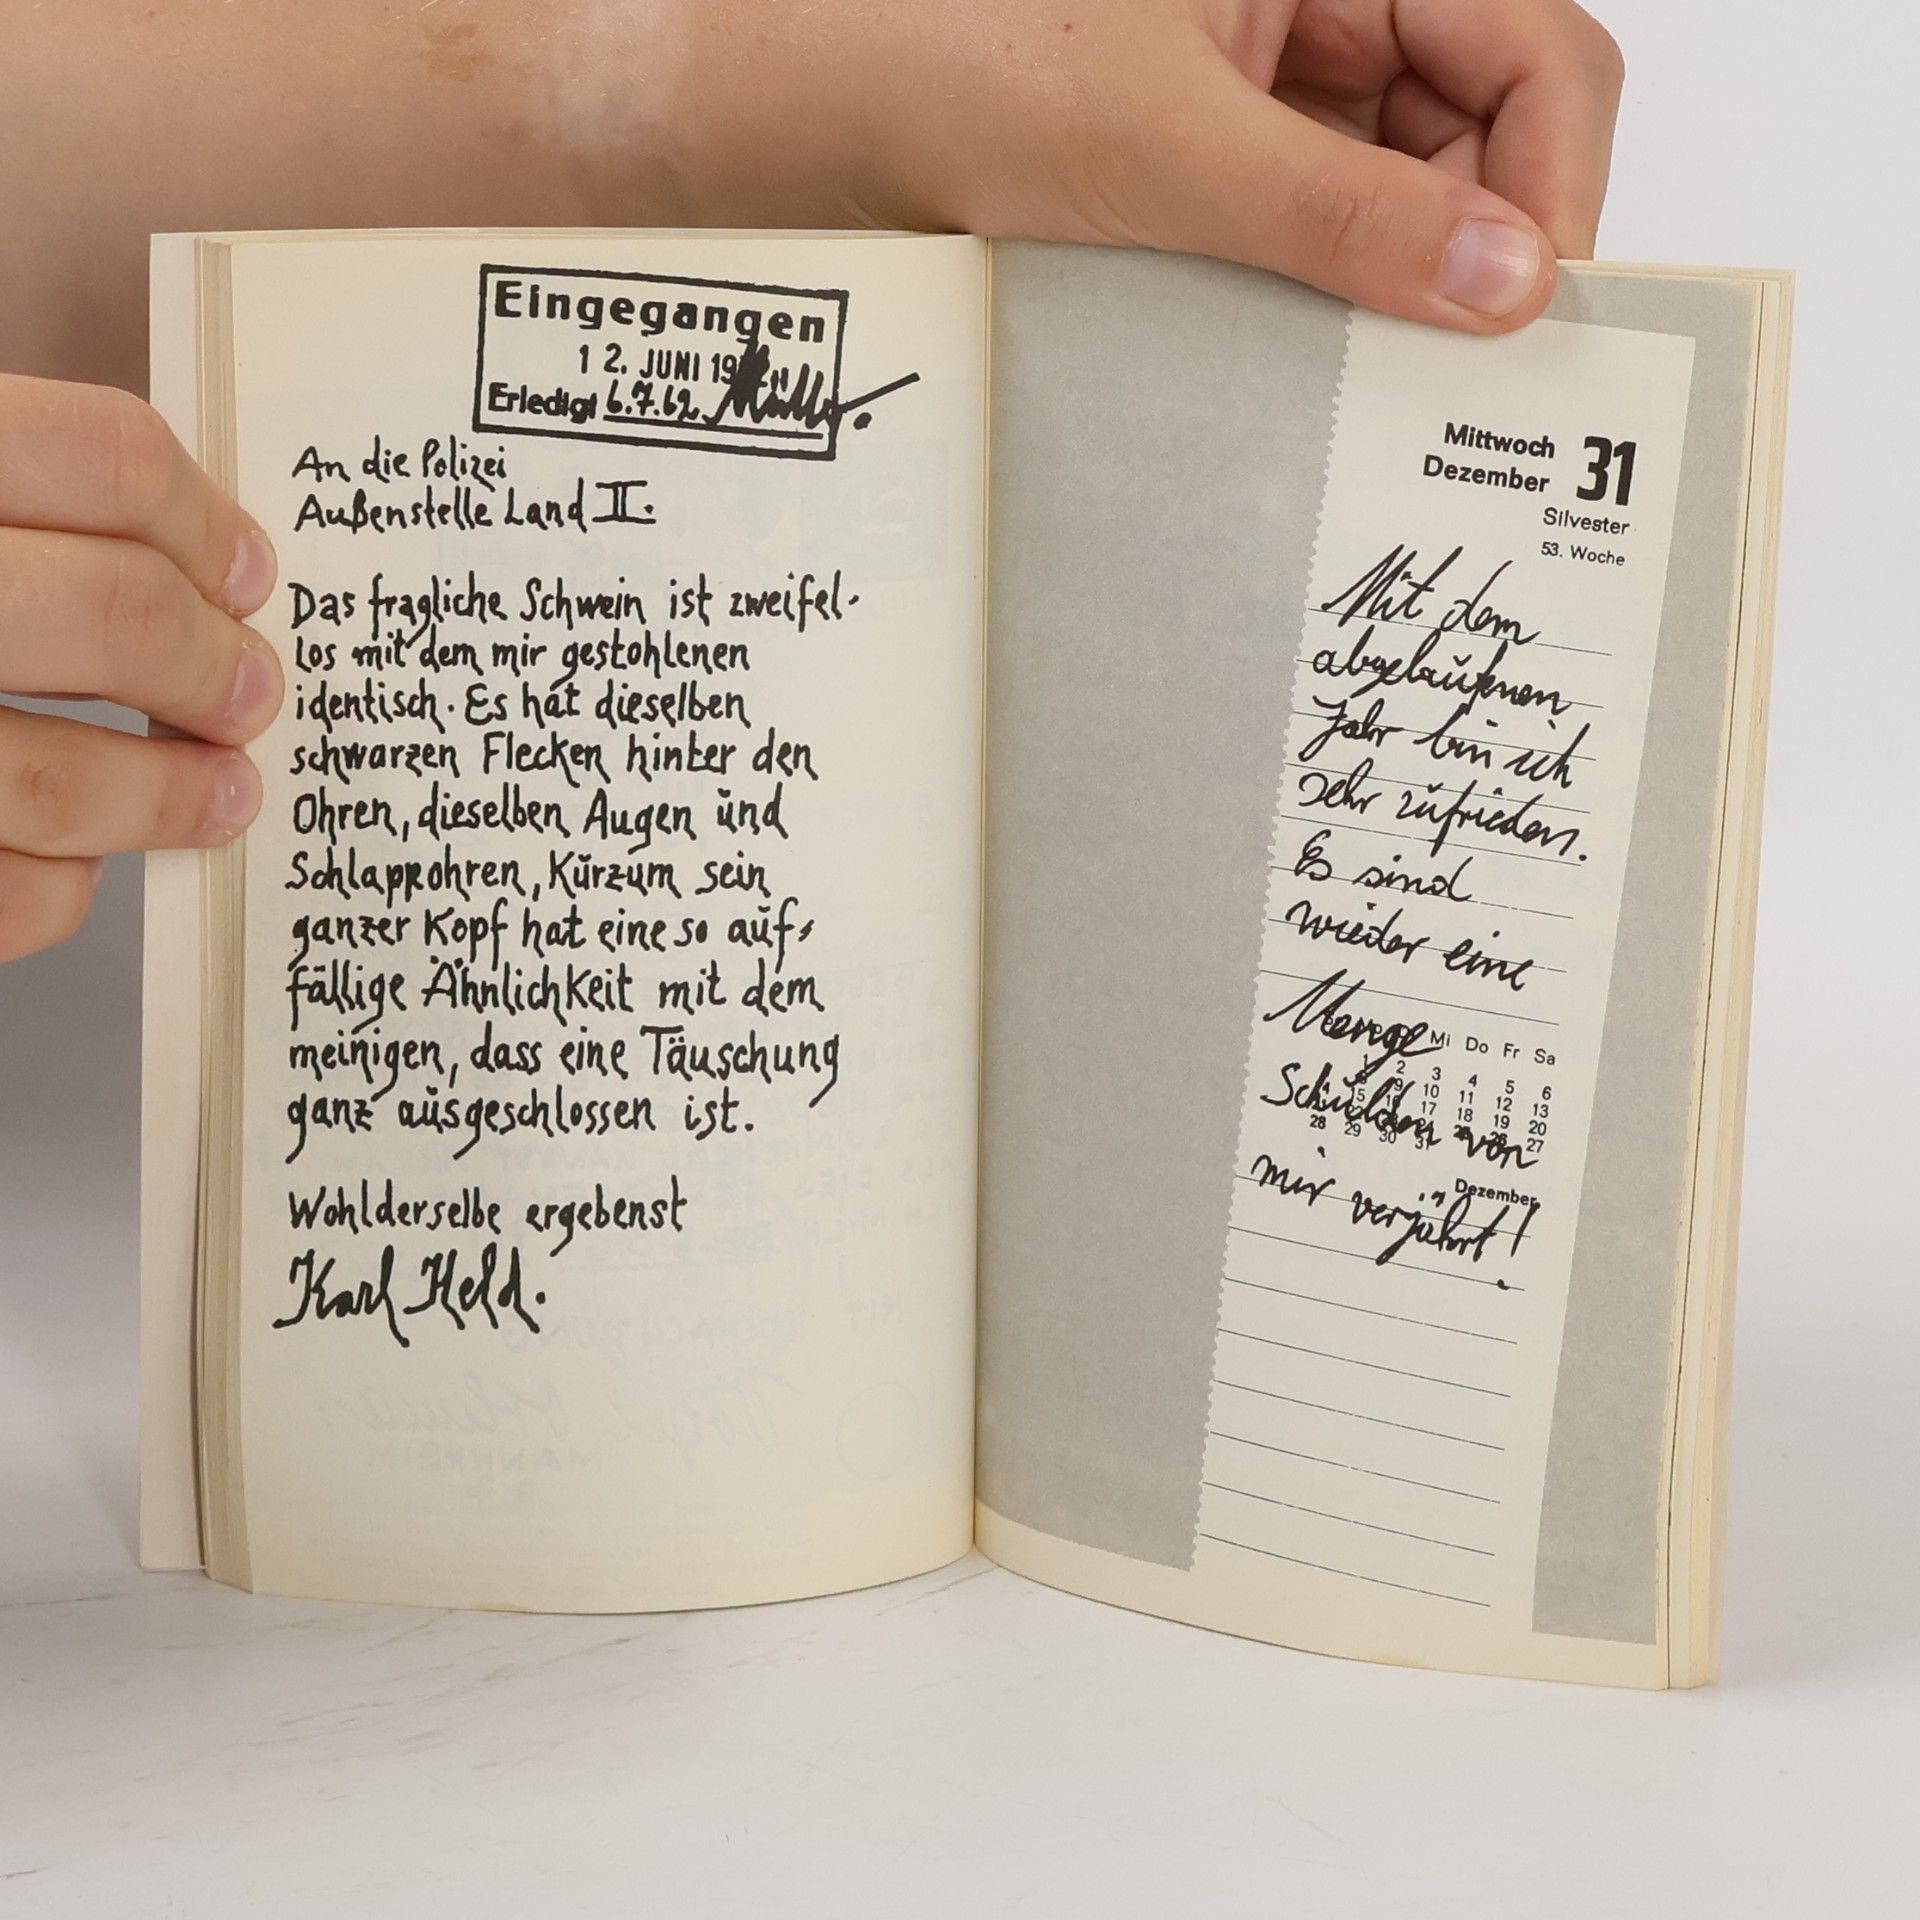 Eingegangen
12. JUNI 19
Erledigt 6.7.62 Müller.
An die Polizei
Außenstelle Land II.
Das fragliche Schwein ist zweifel-
los mit dem mir gestohlenen
identisch. Es hat dieselben
schwarzen Flecken hinter den
Ohren, dieselben Augen und
Schlappohren, Kurzum sein
ganzer Kopf hat eine so auf-
fällige Ähnlichkeit mit dem
meinigen, dass eine Täuschung
ganz ausgeschlossen ist.
Wohlderselbe ergebenst
Karl Held.
Mittwoch 31
Dezember
Silvester
53. Woche
Mit dem
abgelaufenen
Jahr bin ich
sehr zufrieden.
Es sind
wieder eine
Menge
Mi Do Fr Sa
1 2 3 4 5 6
9 10 11 12 13
Schulden von
15 16 17 18 19 20
27
28 29 30 31
Dezember
mir verjährt!